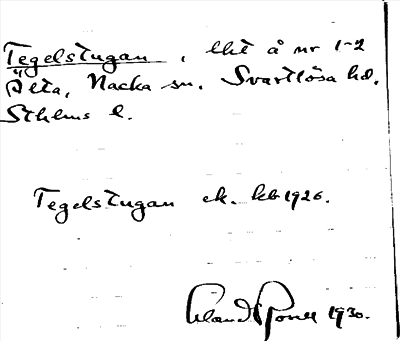 Tegelstugan, lht å nr 1-2
Älta, Nacka sn. Svartlösa hd,
Sthlms l.
Tegelstugan ek. kb 1926.
1930.